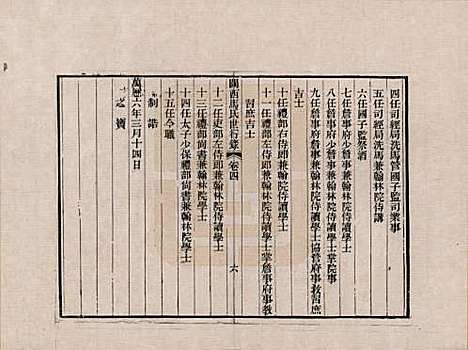 四任司經局洗馬管國子監司業事
五任司經局洗馬兼翰林院侍講
六任國子監祭酒
七任詹事府少詹事兼翰林院侍讀學士
八任詹事府詹事兼翰林院侍讀學士掌院事
九任詹事府詹事兼翰林院侍讀學士協詹府事教習庶
吉士
十任禮部右侍郎兼翰林院侍讀學士
十一任禮部左侍郎兼翰林院侍讀學士掌詹事府事教
習庶吉士
關西馬氏世行錄 卷四 六
十二任吏部左侍郎兼翰林院侍讀學士
十三任禮部尚書兼翰林院學士
十四任太子少保禮部尚書兼翰林院學士
十五任今職
制誥
萬曆六年三月十四日
之寶